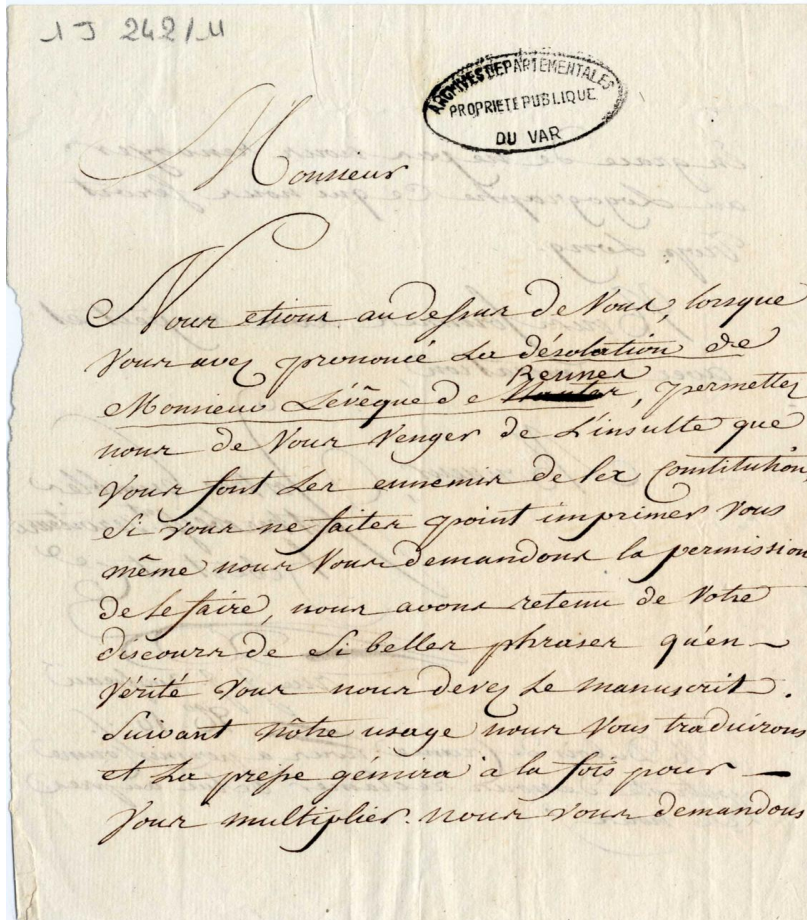 1 J 242/11
ARCHIVES DEPARTEMENTALES
PROPRIETE PUBLIQUE
DU VAR
Monsieur
Nous etions au dessus de Vous, lorsque
Vous avez prononcé La désolation de
Rennes
Monsieur Lévêque de Nantes, permettez
nous de Vous Venger de L'insulte que
Vous font Les ennemis de la Constitution,
Si vous ne faites point imprimer Vous
même nous Vous demandons la permission
de Le faire, nous avons retenu de Votre
discours de Si belles phrases qu'en
Vérité Vous nous devez Le manuscrit.
Suivant nôtre usage nous Vous traduirons
et La presse gémira à la fois pour
Vous multiplier. nous vous demandons